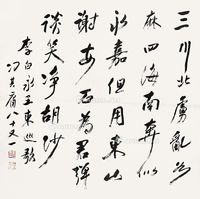 三川北虜亂如
麻四海南奔似
永嘉但用東山
謝安石為君彈
談笑净胡沙
李白永王東巡歌
冯其庸八又一